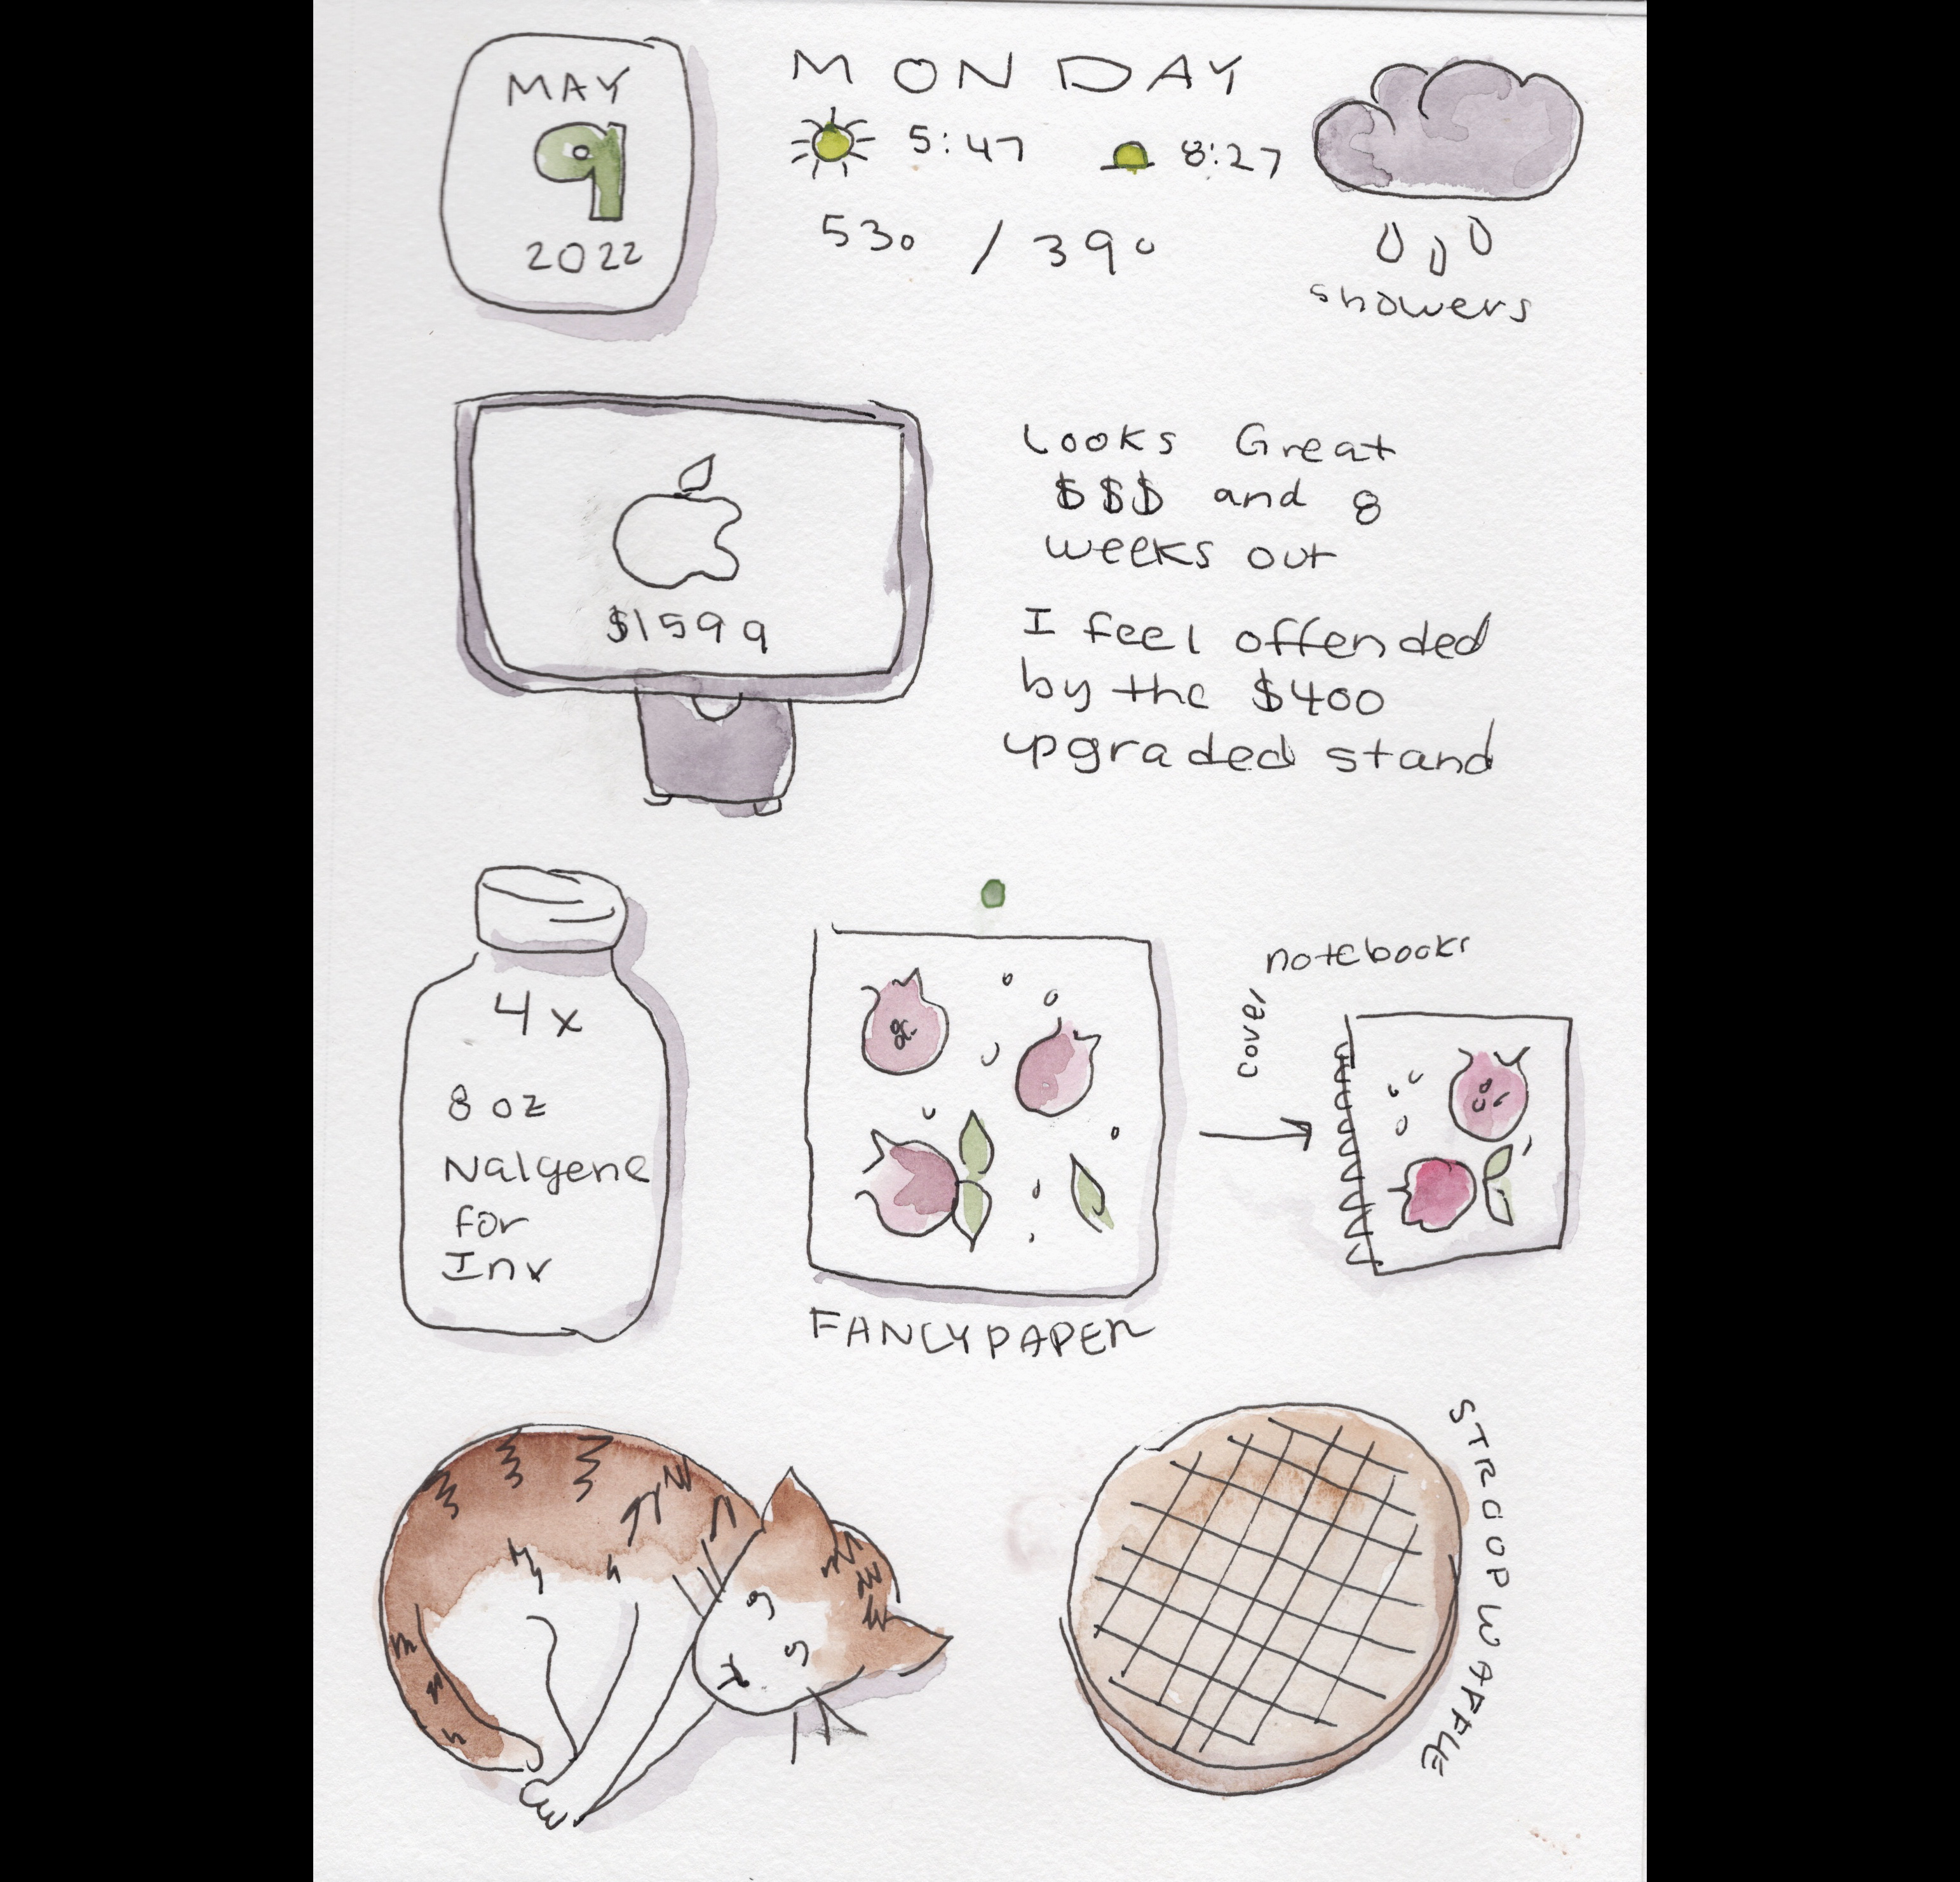 MAY
9
2022
MONDAY
5:47
8:27
53° / 39°
showers
$1599
Looks Great
$$$ and 8
weeks out
I feel offended
by the $400
upgraded stand
4x
8 oz
Nalgene
for
Ink
FANCY PAPER
cover
notebooks
STROOPWAFFLE